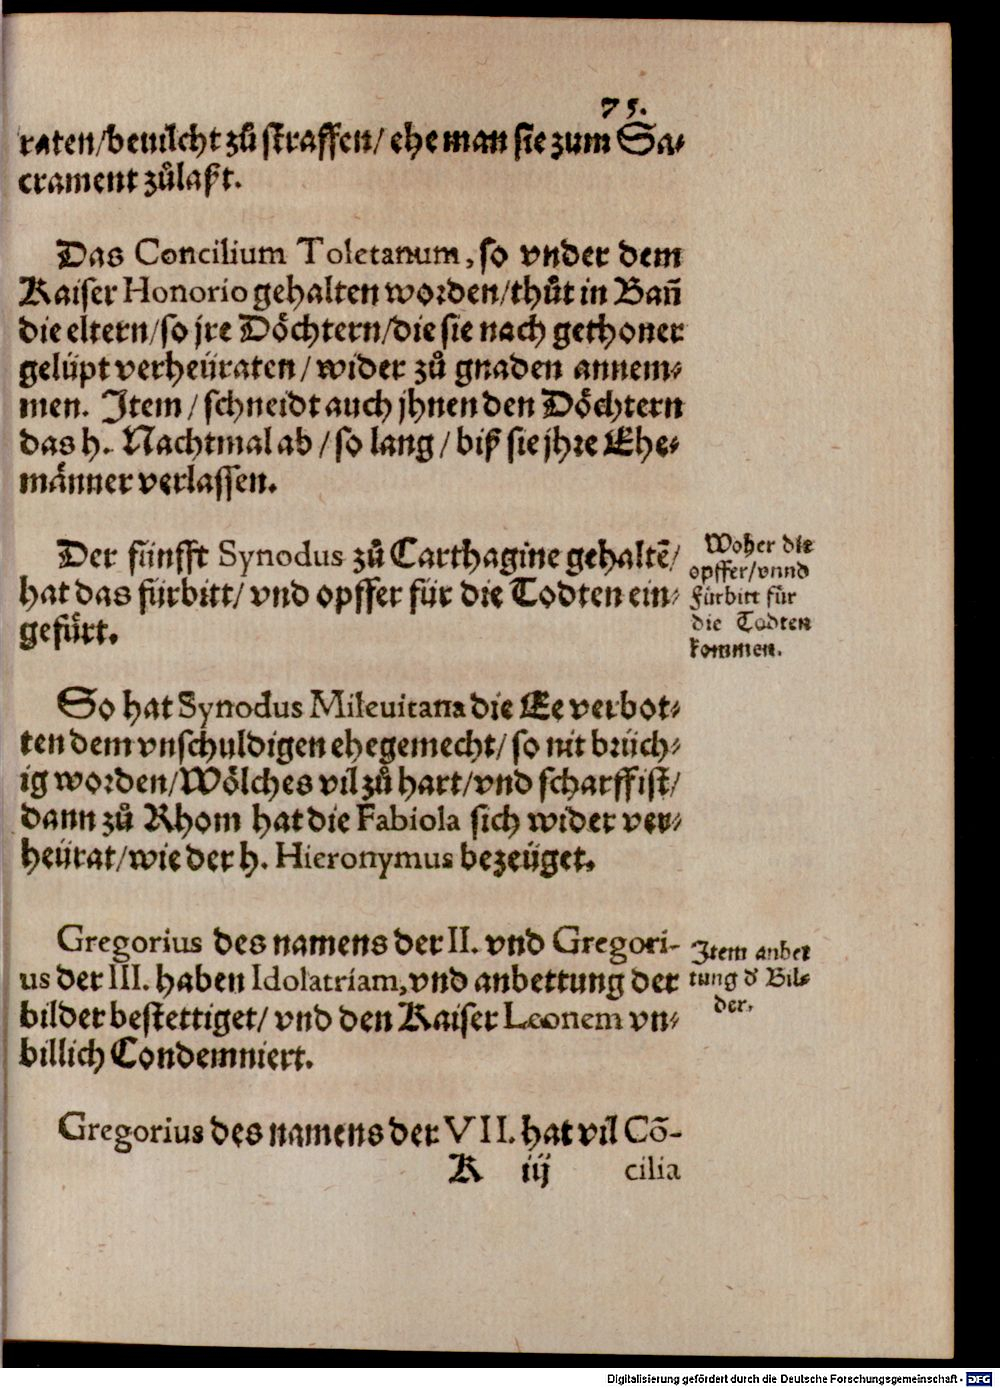 75.
raten/beuilcht zů straffen/ ehe man sie zum Sa⸗
crament zůlaßt.
Das Concilium Toletanum, so vnder dem
Kaiser Honorio gehalten worden/thůt in Bañ
die eltern/so jre Döchtern/die sie nach gethoner
gelüpt verheüraten/ wider zů gnaden annem⸗
men. Item/ schneidt auch jhnen den Döchtern
das h. Nachtmal ab/ so lang/ biß sie jhre Ehe⸗
männer verlassen.
Der fünfft Synodus zů Carthagine gehaltē/
hat das fürbitt/ vnd opffer für die Todten ein⸗
gefürt.
Woher die
opffer/vnnd
Fürbitt für
die Todten
kommen.
So hat Synodus Mileuitana die Ee verbot⸗
ten dem vnschuldigen ehegemecht/ so nit brüch⸗
ig worden/Wölches vil zů hart/vnd scharff ist/
dann zů Rhom hat die Fabiola sich wider ver⸗
heürat/wie der h. Hieronymus bezeüget.
Gregorius des namens der II. vnd Gregori-
us der III. haben Idolatriam, vnd anbettung der
bilder bestettiget/ vnd den Kaiser Leonem vn⸗
billich Condemniert.
Item anbet
tung d Bil⸗
der.
Gregorius des namens der VII. hat vil Cō-
K iij cilia
Digitalisierung gefördert durch die Deutsche Forschungsgemeinschaft - DFG